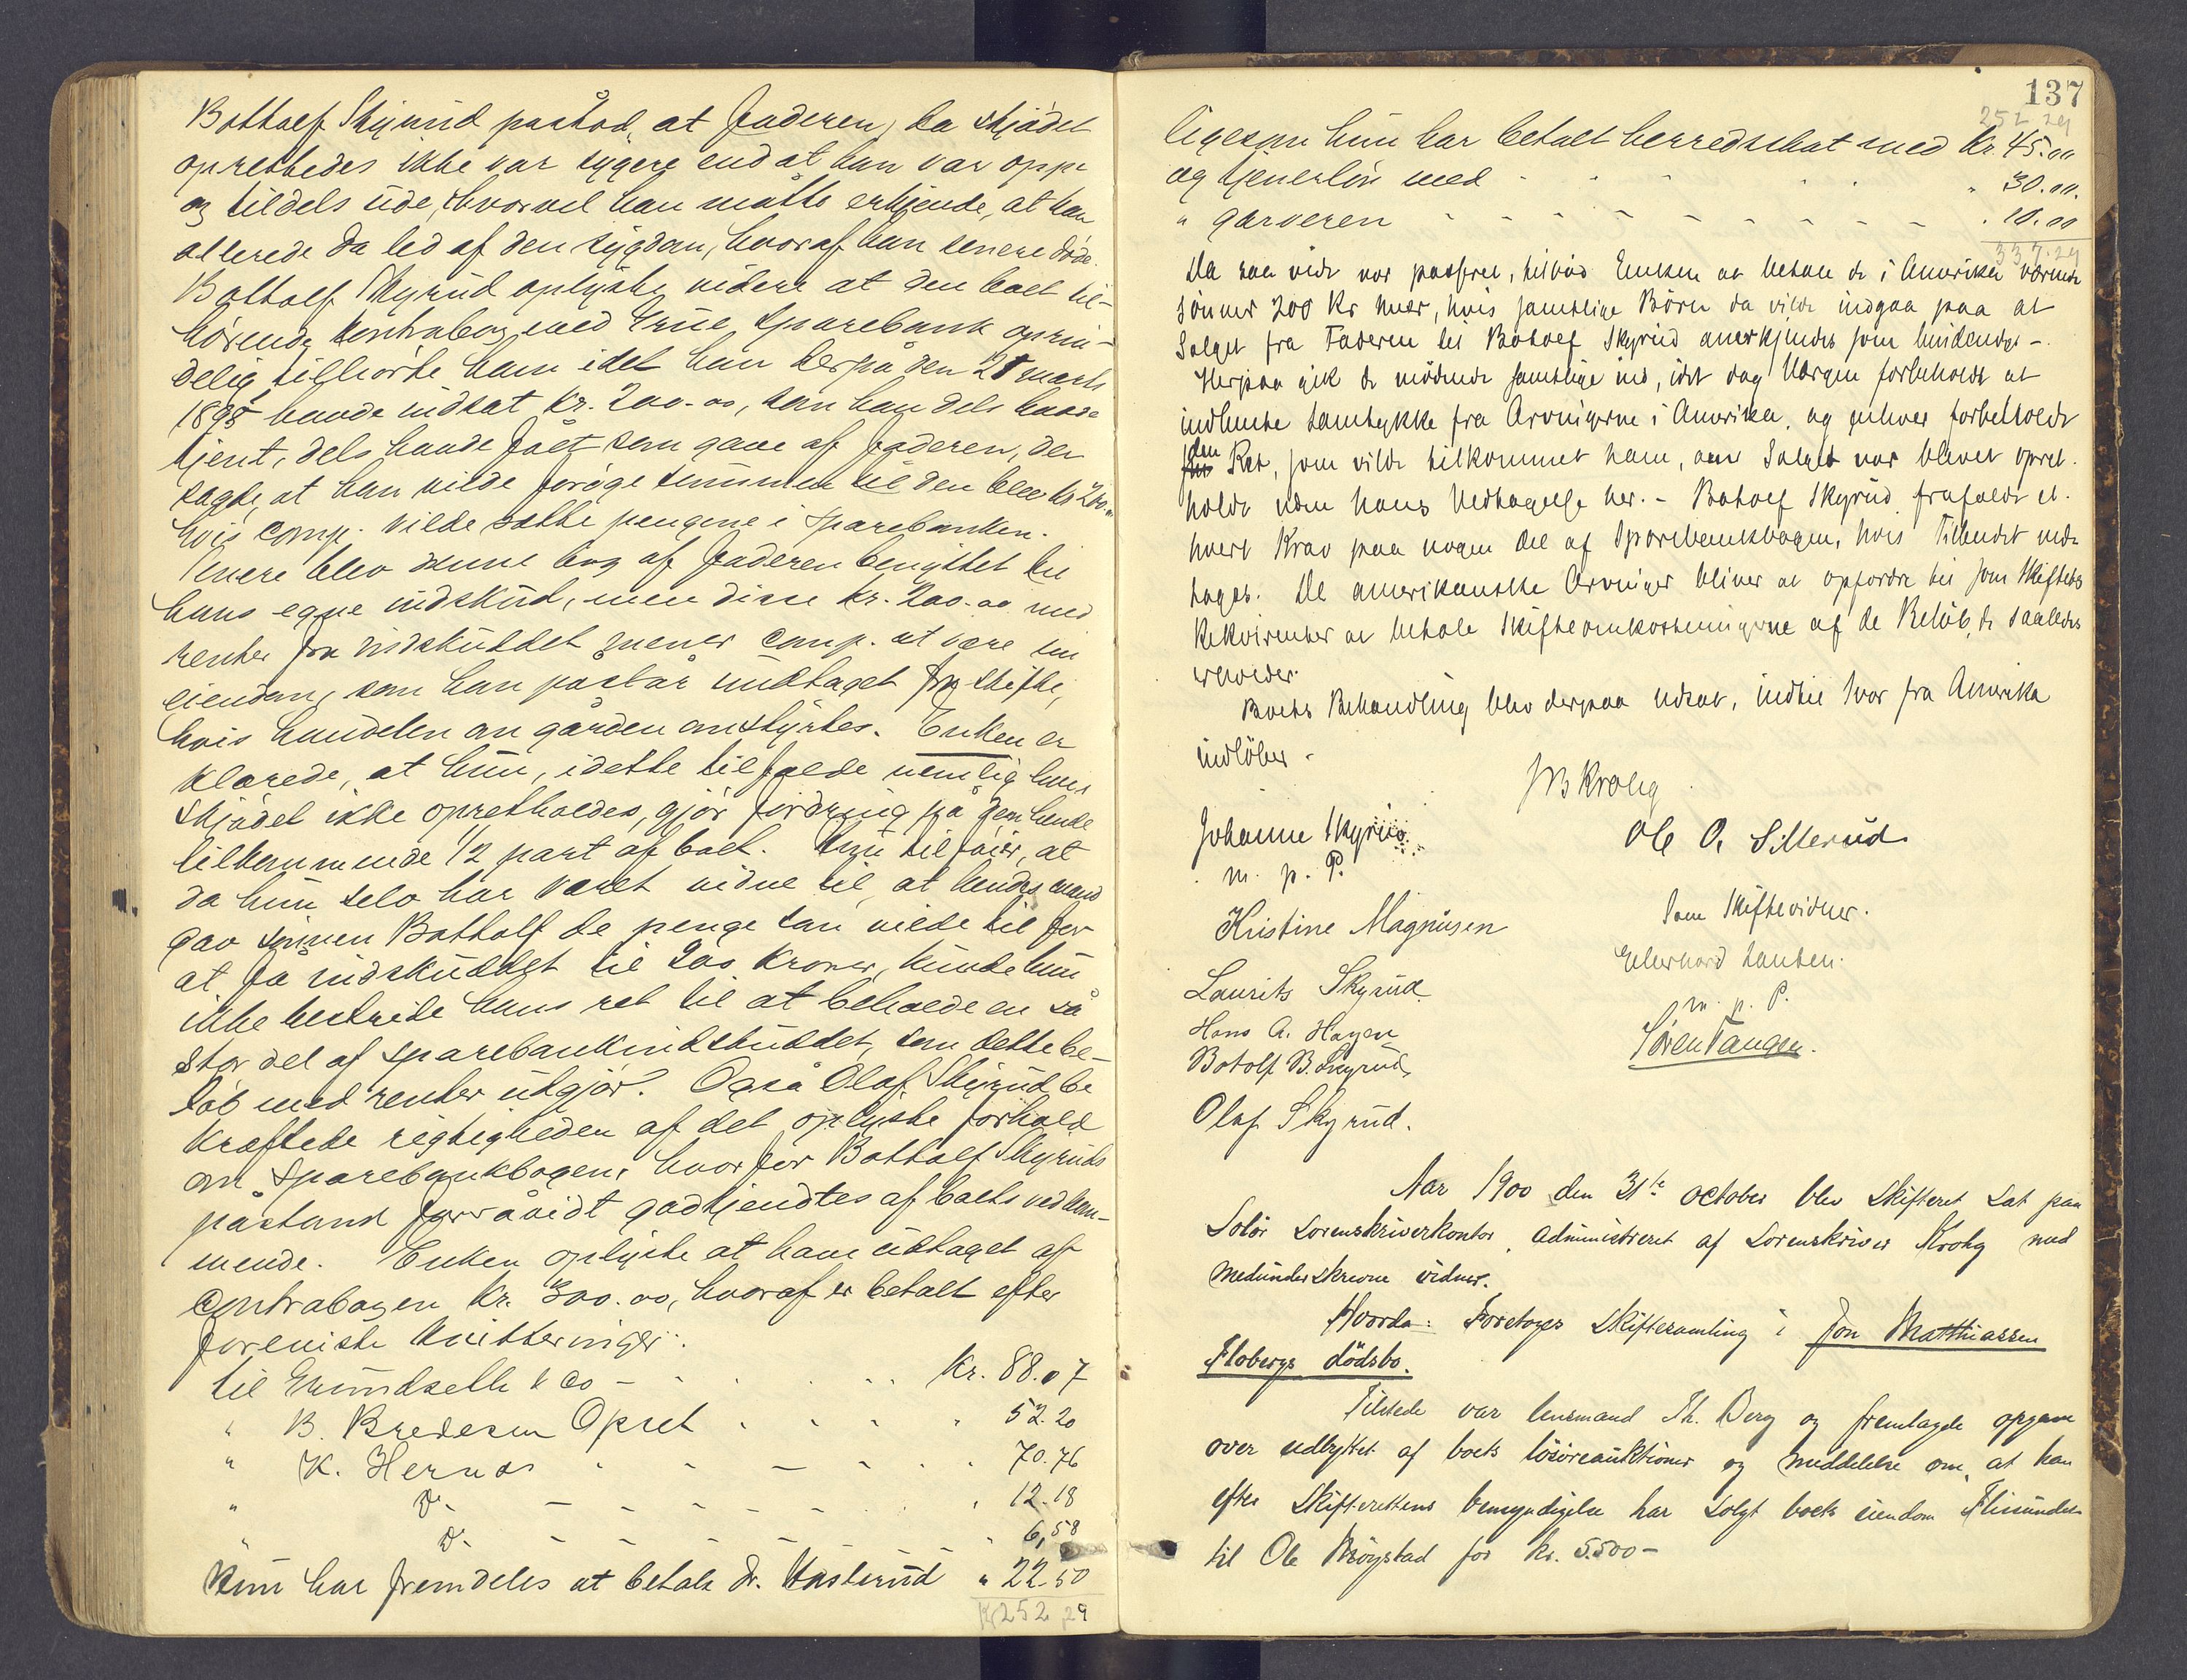 Bottolf Skyrud påstod, at Faderen, da skjødet
oprettedes ikke var sygere end at han var oppe
og tildels ude, hvorvel han måtte erkjende, at han
allerede da led af den sygdom, hvoraf han senere døde.
Bottolf Skyrud oplyste videre at den boet til-
hørende kontrabog med Grue Sparebank oprin-
delig tilhørte ham idet han derpå den 21 marts
1895 havde indsat kr. 200.00, som han dels havde
tjent, dels havde fået som gave af Faderen, der
sagde, at han vilde forøge summen til den blev kr 200.00
hvis Comp. vilde sætte pengene i Sparebanken.
Senere blev denne bog af Faderen benyttet til
hans egne indskud, men disse kr. 200.00 med
renter fra indskuddet mener Comp. at være sin
eiendom, som han påstår undtaget fra skifte,
hvis handelen om gården omstyrtes. Enken er
klarede, at hun, i dette tilfælde nemlig hvis
skjødet ikke opretholdes, gjør fordring på den hende
tilkommende 1/2 part af boet. Hun tilføier, at
da hun selv har været vidne til, at hendes mand
gav sønnen Bottolf de penge som vilde til for
at få indskuddet til 200 kroner, kunde hun
ikke bestride hans ret til at beholde en så
stor del af sparebankindskuddet, som dette be-
løb med renter udgjør. Også Olaf Skyrud be
kræftede rigtigheden af det oplyste forhold
om sparebankbogen, hvorfor Bottolf Skyruds
påstand forsåvidt godkjendtes af boets vedkom-
mende. Enken oplyste at have udtaget af
Contrabogen kr. 300.00, hvoraf er betalt efter
foreviste kvitteringer:
til Grundseth & Co - Kr. 88.07
" B. Bredesen Opset " 52.20
" K. Hernæs " 70.76
" Do " 12.18
" Do " 6,58
Hun har fremdeles at betale Dr. Hasterud " 22.50
Kr 252 29
137
252 29
ligesom hun har betalt herredsskat med Kr. 45.00
og tjenerløn med " 30.00.
" garveren " 10.00
337.29
Da saa vidt var passeret, tilbød Enken at betale de i Amerika værende
Sønner 200 Kr hver, hvis samtlige Børn da vilde indgaa paa at
Salget fra Faderen til Botolf Skyrud anerkjendes som bindende. -
Herpaa gik de mødende samtlige ind, idet dog Værgen forbeholdt at
indhente Samtykke fra Arvingerne i Amerika, og enhver forbeholdt
sig den Ret, som vilde tilkommet ham, om Salget var blevet opret-
holdt uden hans Vedtagelse her. - Botolf Skyrud frafaldt et-
hvert Krav paa nogen Del af Sparebankbogen, hvis Tilbudet ved-
tages. De amerikanske Arvinger bliver at opfordre til som Skiftets
Rekvirenter at betale Skifteomkostningerne af de Beløb, de saaledes
erholder.
Boets Behandling blev derpaa udsat, indtil Svar fra Amerika
indløber -
JB Krohg
Johanne Skyrud
m. p. P.
Ole O. Sillerud
Kristine Magnusen
Som Skiftevidner.
Laurits Skyrud
Hans A. Hagen
m. p. P.
Botolf B. Skyrud
Søren Tangen.
Olaf Skyrud.
Aar 1900 den 31te october blev Skifteret sat paa
Solør Sorenskriverkontor, administreret af Sorenskriver Krohg med
medunderskrevne vidner.
Hvorda: Foretoges Skiftesamling i Jon Matthiassen
Flobergs dödsbo.
Tilstede var lensmand Th. Berg og fremlagde opgave
over udbyttet af boets lösöreauktioner og meddelelse om, at han
efter Skifterettens bemyndigelse har solgt boets eiendom Flisundet
til Ole Mögstad for kr. 5.500 -